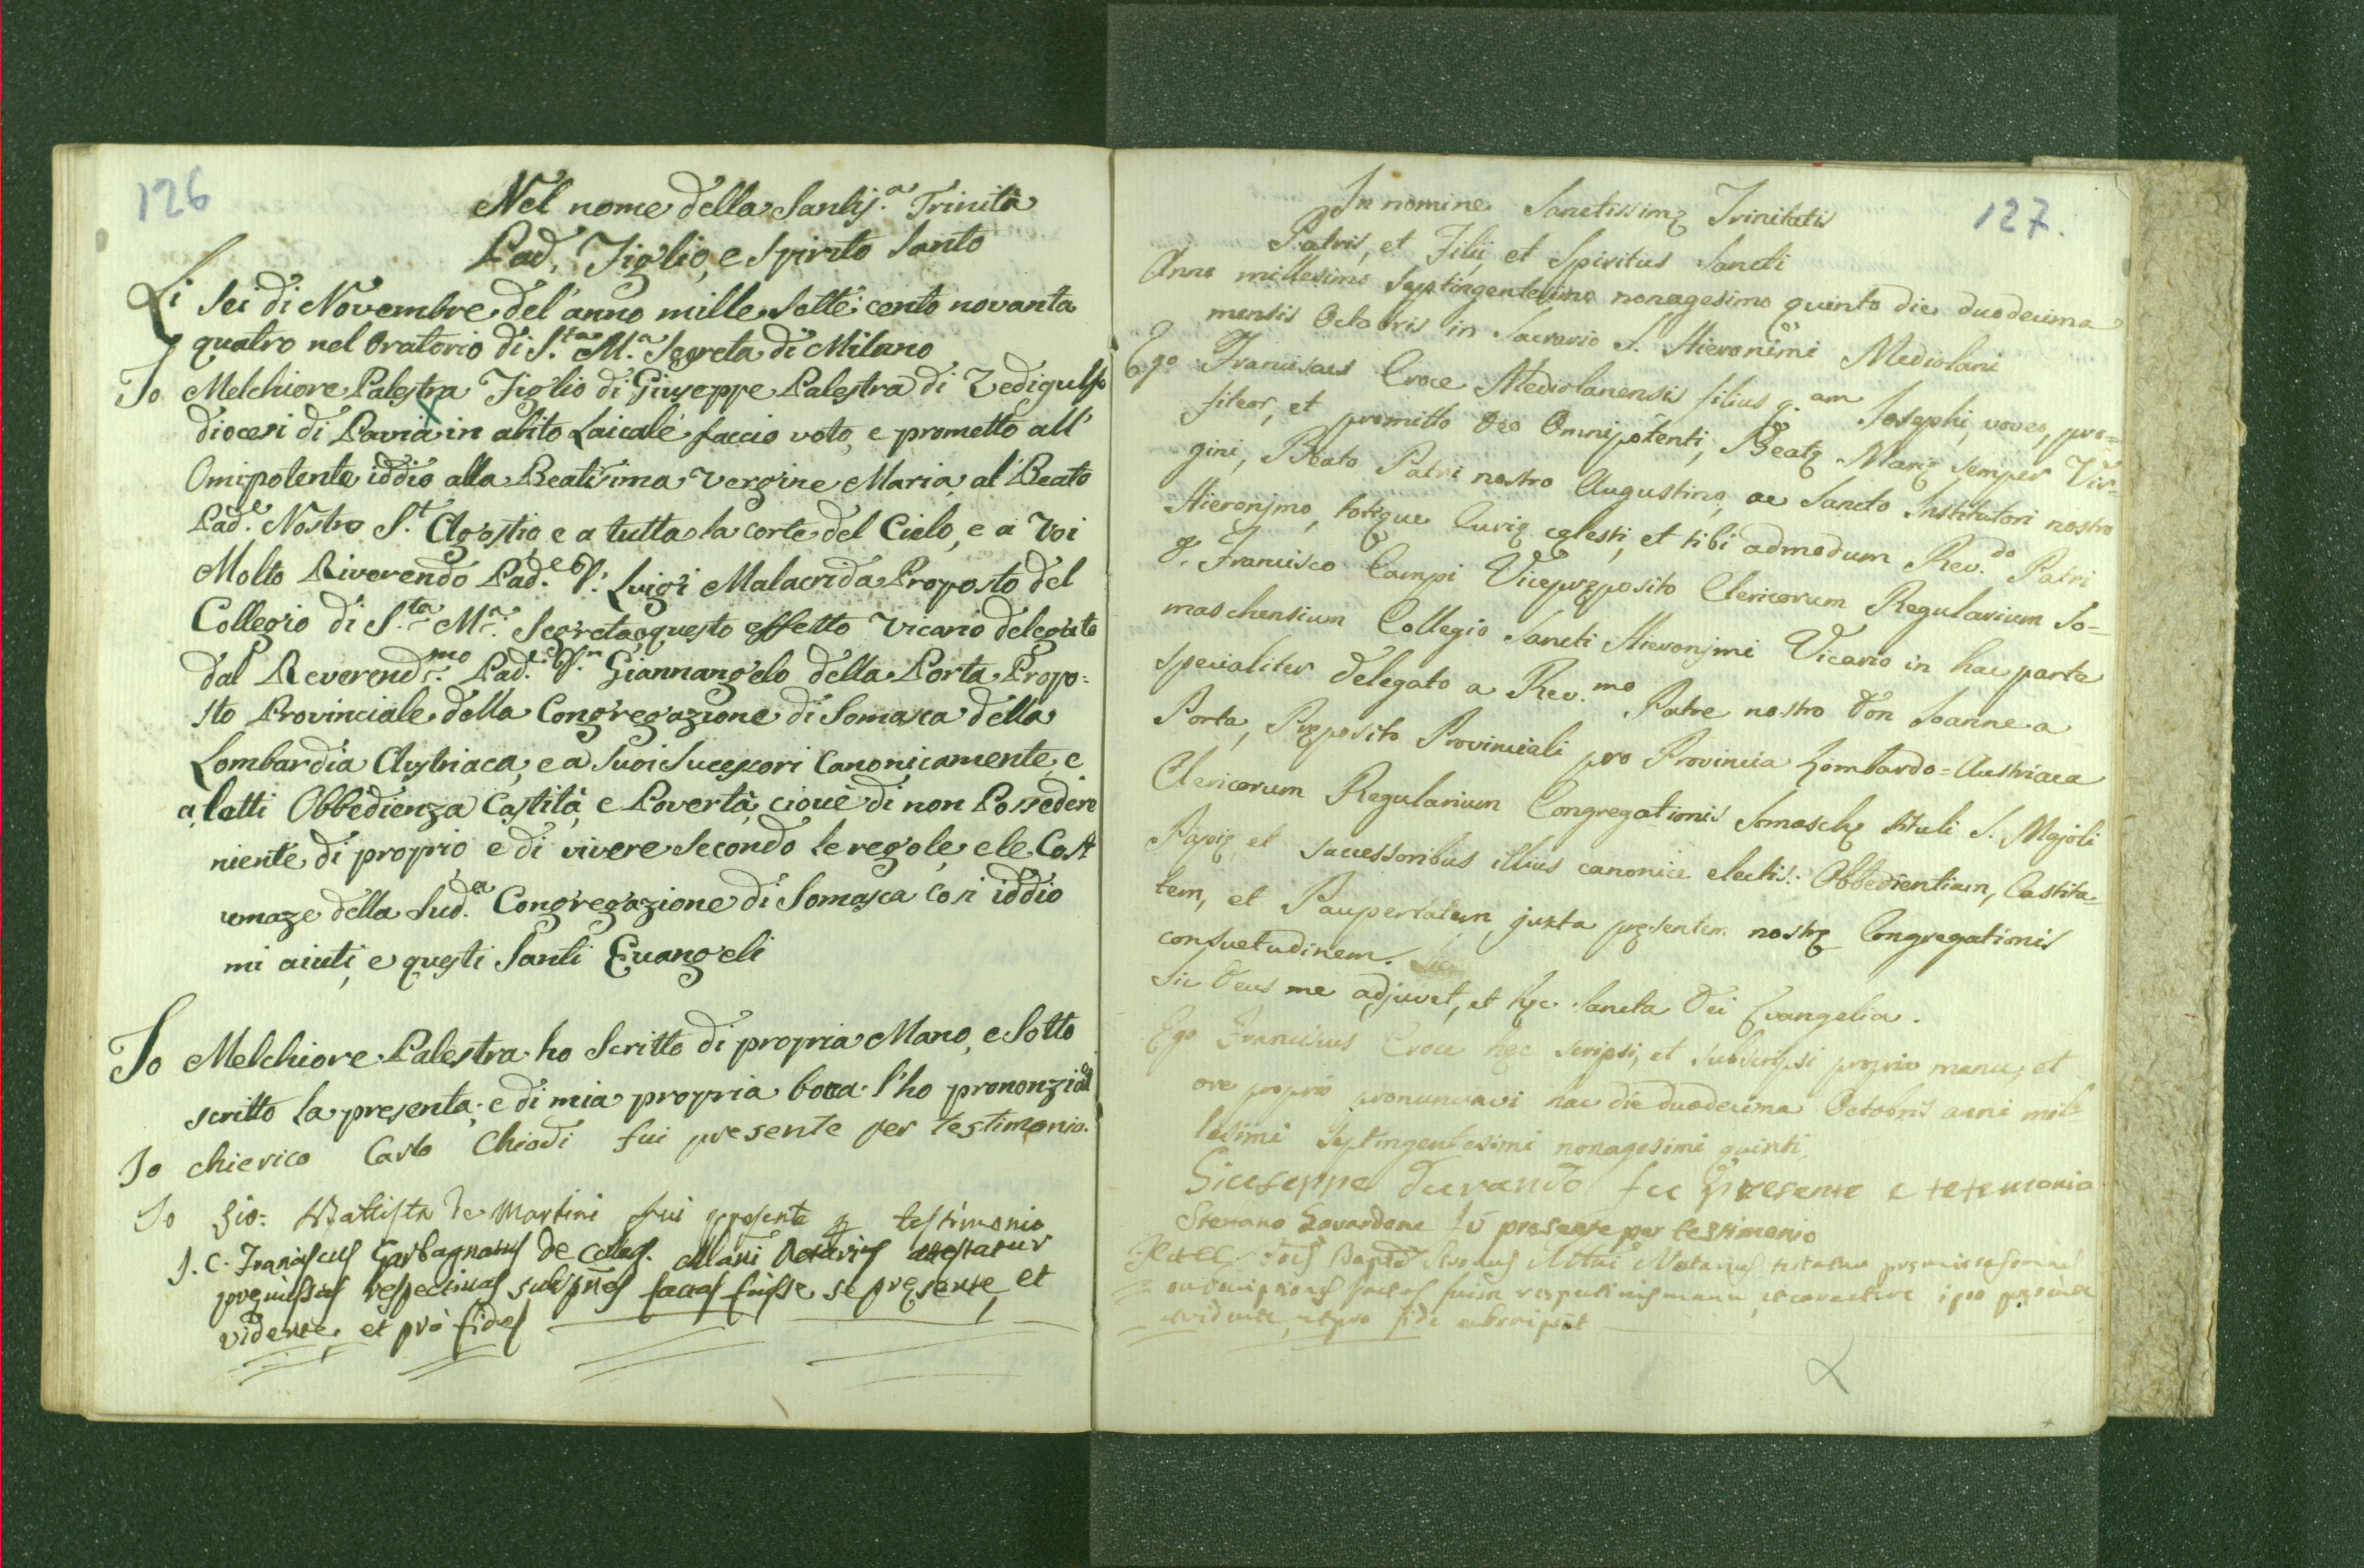 126
Nel nome della Santis.a Trinità
Pad. Figlio, e Spirito Santo
Li Sei di Novembre del' anno mille Sette cento novanta
quatro nel Oratorio di S.ta M.a Segreta di Milano
Io Melchiore Palestra Figlio di Giuseppe Palestra di Zedigulfo
diocesi di Pavia in abito Laicale faccio voto, e prometto all'
Omipotente iddio alla Beatisima Vergine Maria al' Beato
Pad.e Nostro S.t Agostio e a tutta la corte del Cielo, e a Voi
Molto Riverendo Pad.e D. Luigi Malacrida Proposto del
Collegio di S.ta M.a Segreta a questo effetto Vicario delegato
dal Reverend.mo Pad.e D.n Giannangelo della Porta Propo:
sto Provinciale della Congregazione di Somasca della
Lombardia Austriaca, e a Suoi Sucessori Canonicamente e
a letti Obbedienza Castità, e Povertà, ciouè di non Possedere
niente di proprio e di vivere Secondo le regole, e le Cost
umaze della Sud.a Congregazione di Somasca Cosi iddio
mi aiuti, e questi Santi Euangeli
Io Melchiore Palestra ho Scritto di propria Mano, e Sotto
scritto la presenta, e di mia propria boca l'ho prononziat
Io chierico Carlo Chiodi fui presente per testimonio.
Io Gio: Battista De Martini fui presente per testimonio
J. C. Franciscus Garbagnatus de Coleg. Mlani Notarius attestatur
premissas respectivas subspnes factas fuisse se presente, et
vidente, et prò fide
127.
In nomine Sanctissimę Trinitatis
Patris, et Filii, et Spiritus Sancti
Anno millesimo Septingentesimo nonagesimo quinto die duodecima
mensis Octobris in Sacrario S. Hieronimi Mediolani
Ego Franciscus Croce Mediolanensis filius q.am Josephi, voveo, pro=
fiteor, et promitto Deo Omnipotenti, Beatę Marię semper Vir=
gini, Beato Patri nostro Augustino, ac Sancto Institutori nostro
Hieronjmo, totique Curię cęlesti, et tibi admodum Rev.do Patri
D. Francisco Campi Vicepręposito Clericorum Regularium So=
maschensium Collegio Sancti Hieronjmi Vicario in hac parte
specialiter delegato a Rev.mo Patre nostro Don Joanne a
Porta, Pręposito Provinciali pro Provincia Lombardo=Austriaca
Clericorum Regularium Congregationis Somaschę tituli S. Majoli
Papię, et successoribus illius canonice electis: Obbedientiam, Castita=
tem, et Paupertatem juxta pręsentem nostrę Congregationis
consuetudinem.
Sic Deus me adjuvet, et hęc Sancta Dei Evangelia.
Ego Franciscus Croce hęc scripsi, et subscripsi propria manu, et
ore proprio pronunciavi hac die duodecima Octobris anni mil=
lesimi Septingentesimi nonagesimi quinti.
Giuseppe durando fui presente e tetemonio
Stefano Lavardone fú presente per testimonio
Notarius testatur premissas
subscriptiones factas fuisse manu, et caractere ipso presente
et vidente, et pro fide subscripsit